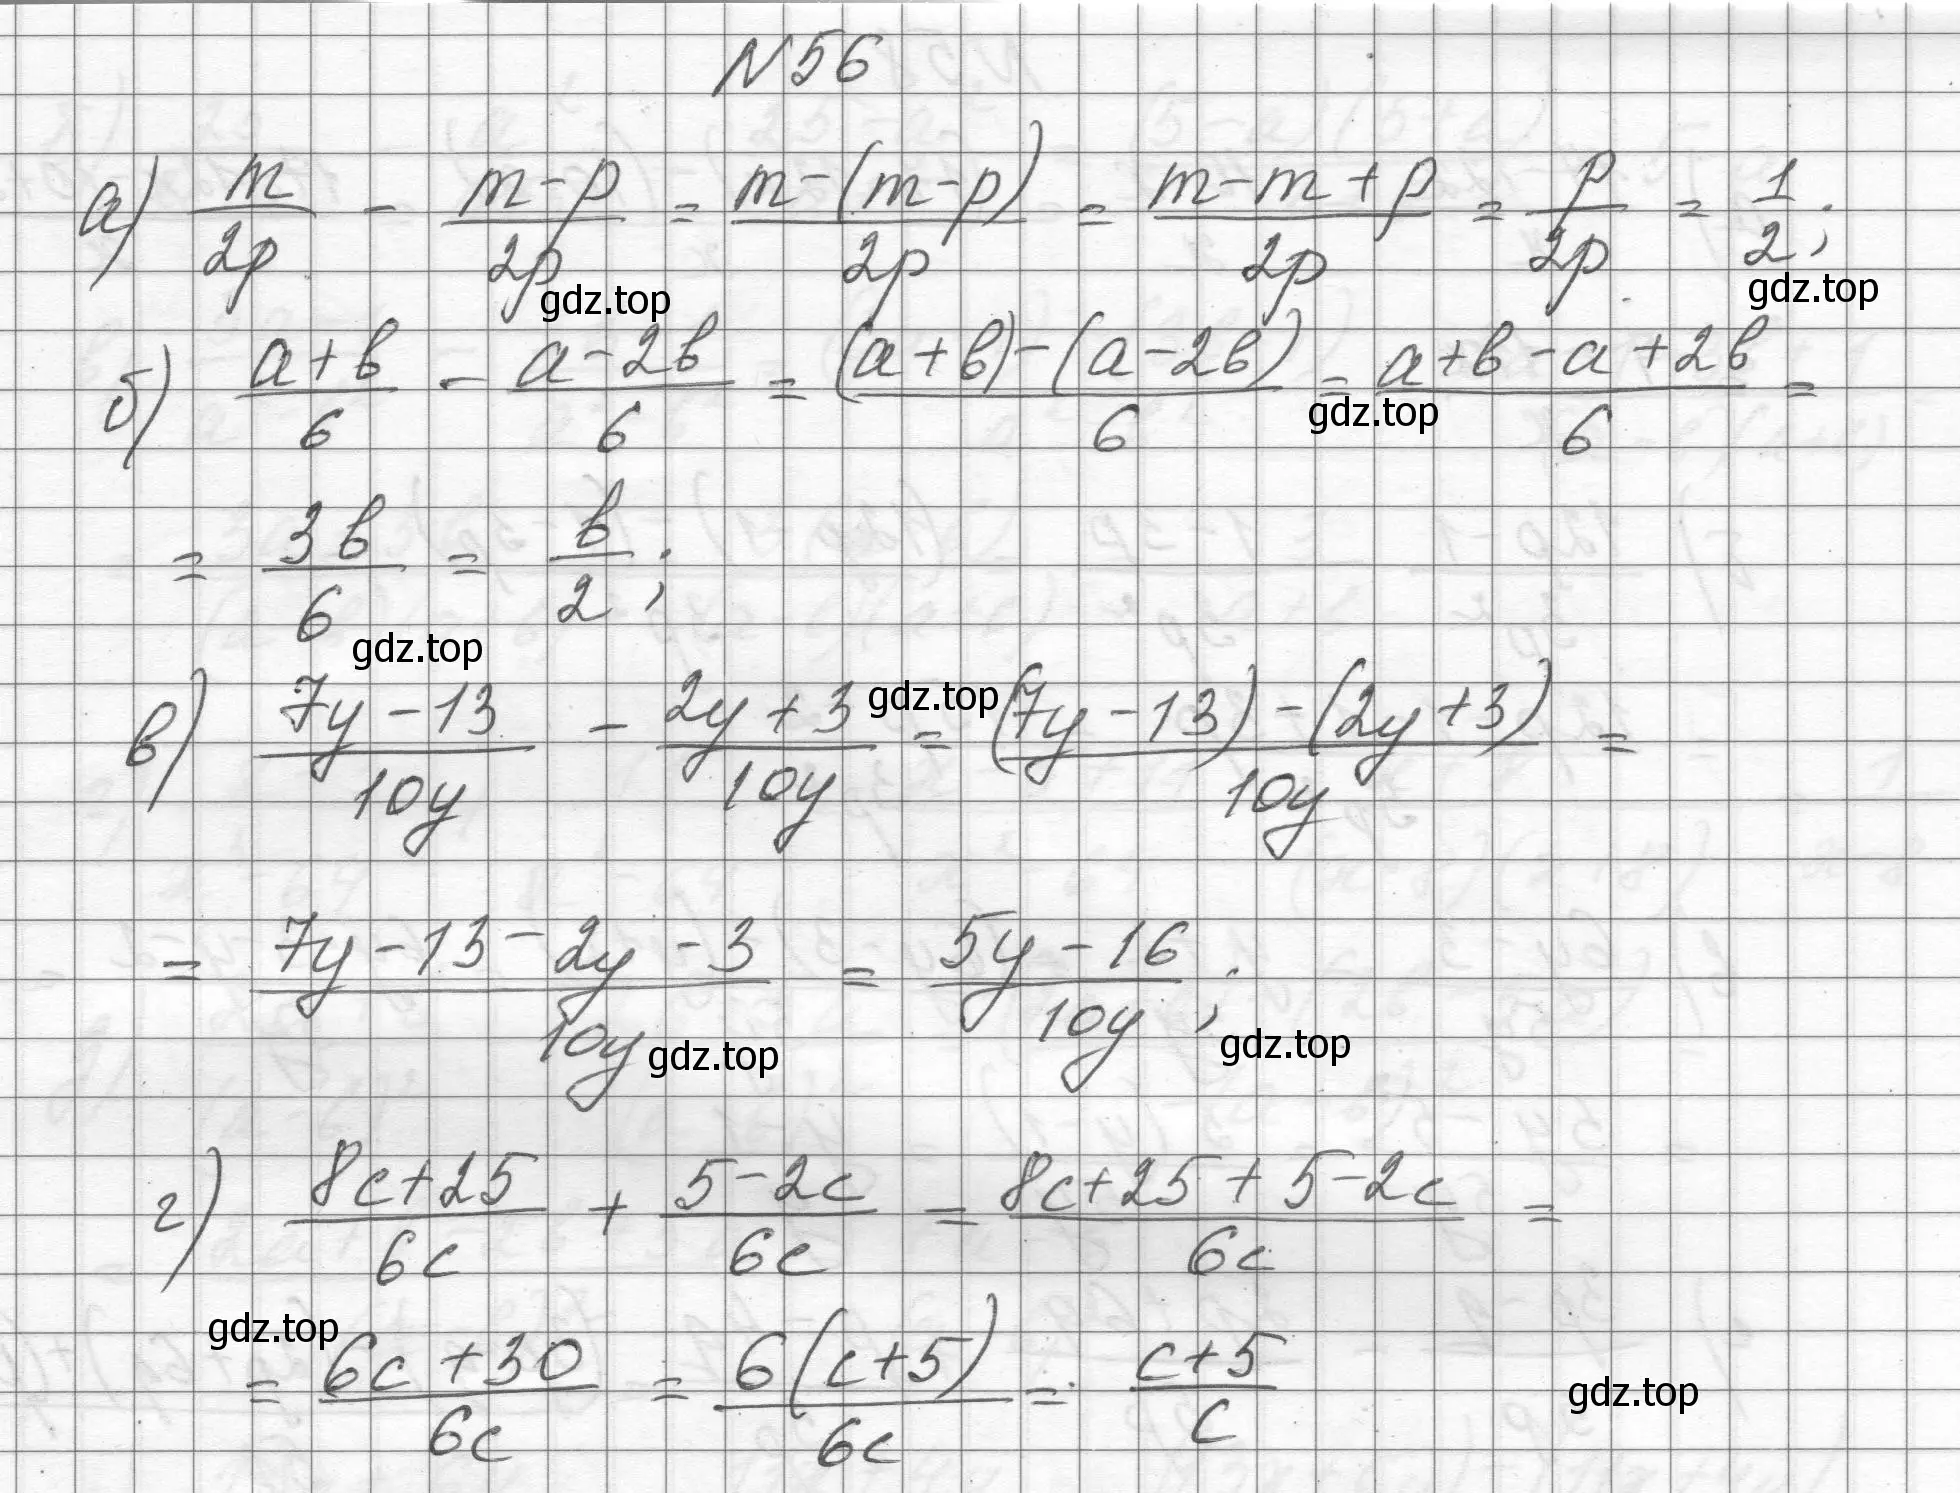 N56
а) m/2p - (m-p)/2p = (m-(m-p))/2p = (m-m+p)/2p = p/2p = 1/2;
gdz.top
gdz.top
б) (a+b)/6 - (a-2b)/6 = ((a+b)-(a-2b))/6 = (a+b-a+2b)/6 =
gdz.top
= 3b/6 = b/2;
gdz.top
в) (7y-13)/10y - (2y+3)/10y = ((7y-13)-(2y+3))/10y =
gdz.top
= (7y-13-2y-3)/10y = (5y-16)/10y;
gdz.top
gdz.top
г) (8c+25)/6c + (5-2c)/6c = (8c+25+5-2c)/6c =
gdz.top
= (6c+30)/6c = 6(c+5)/6c = (c+5)/c
gdz.top